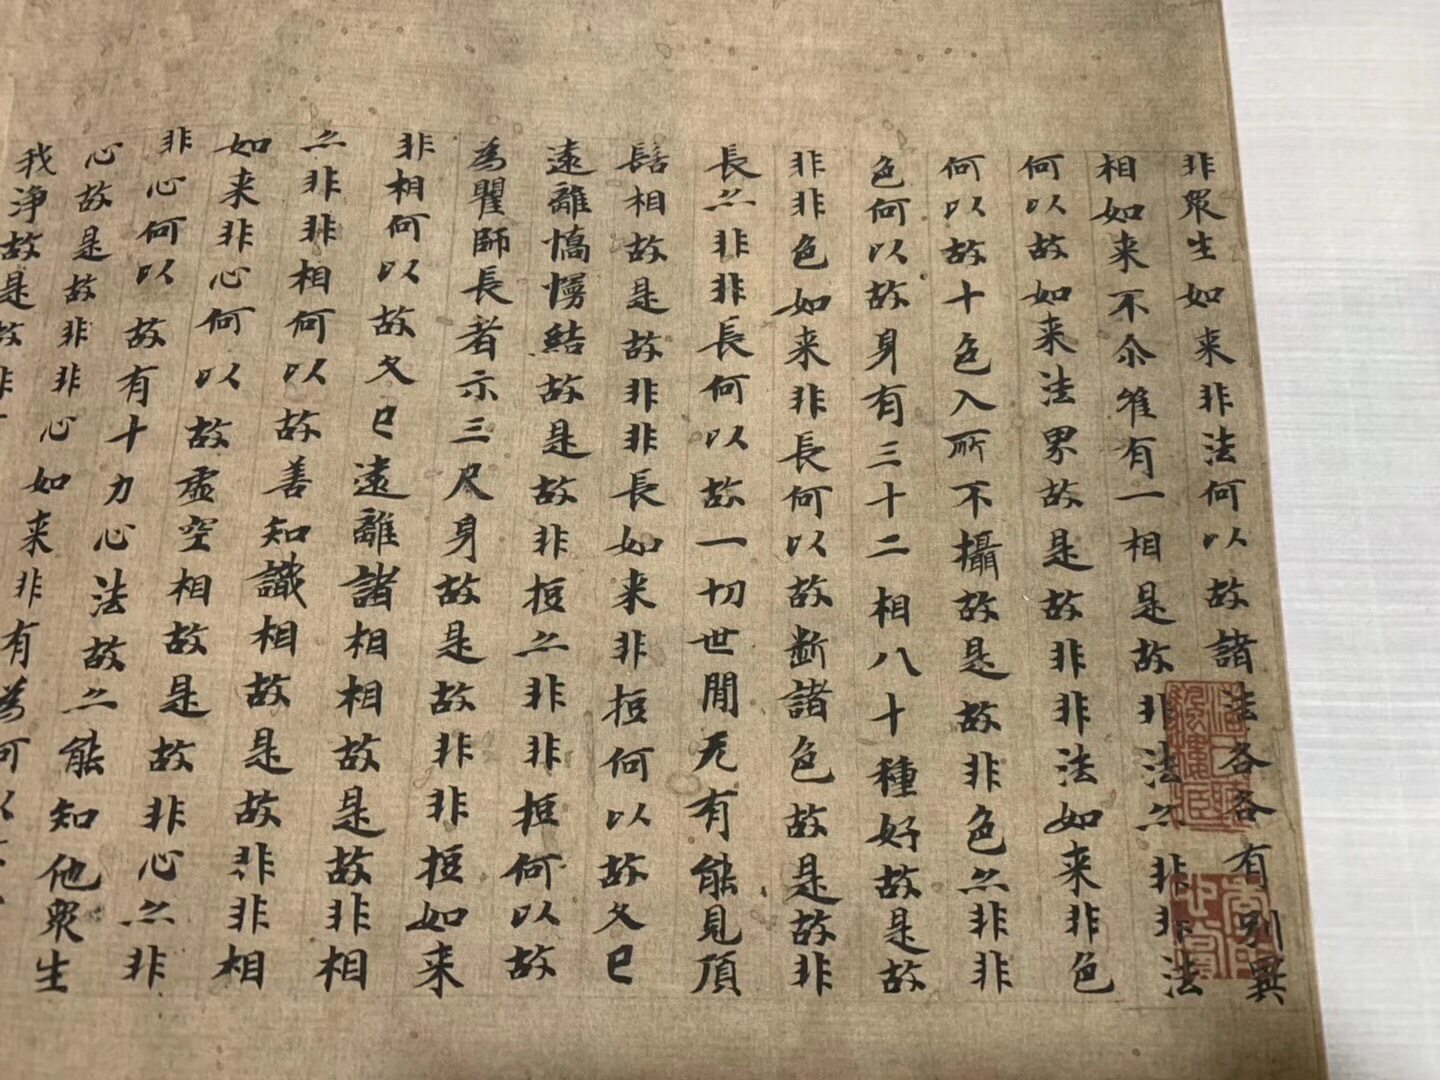 非眾生如来非法何以故諸法各各有別異
相如来不尒唯有一相是故非法亦非非法
何以故如来法界故是故非非法如来非色
何以故十色入所不攝故是故非色亦非非
色何以故身有三十二相八十種好故是故
非非色如来非長何以故斷諸色故是故非
長亦非非長何以故一切世間无有能見頂
髻相故是故非非長如来非短何以故久已
遠離憍慢結故是故非短亦非非短何以故
為瞿師長者示三尺身故是故非非短如来
非相何以故久已遠離諸相相故是故非相
亦非非相何以故善知識相故是故非非相
如来非心何以故虛空相故是故非心亦非
非心何以故有十力心法故亦能知他眾生
心故是故非非心如来非有為何以
我淨故是故非